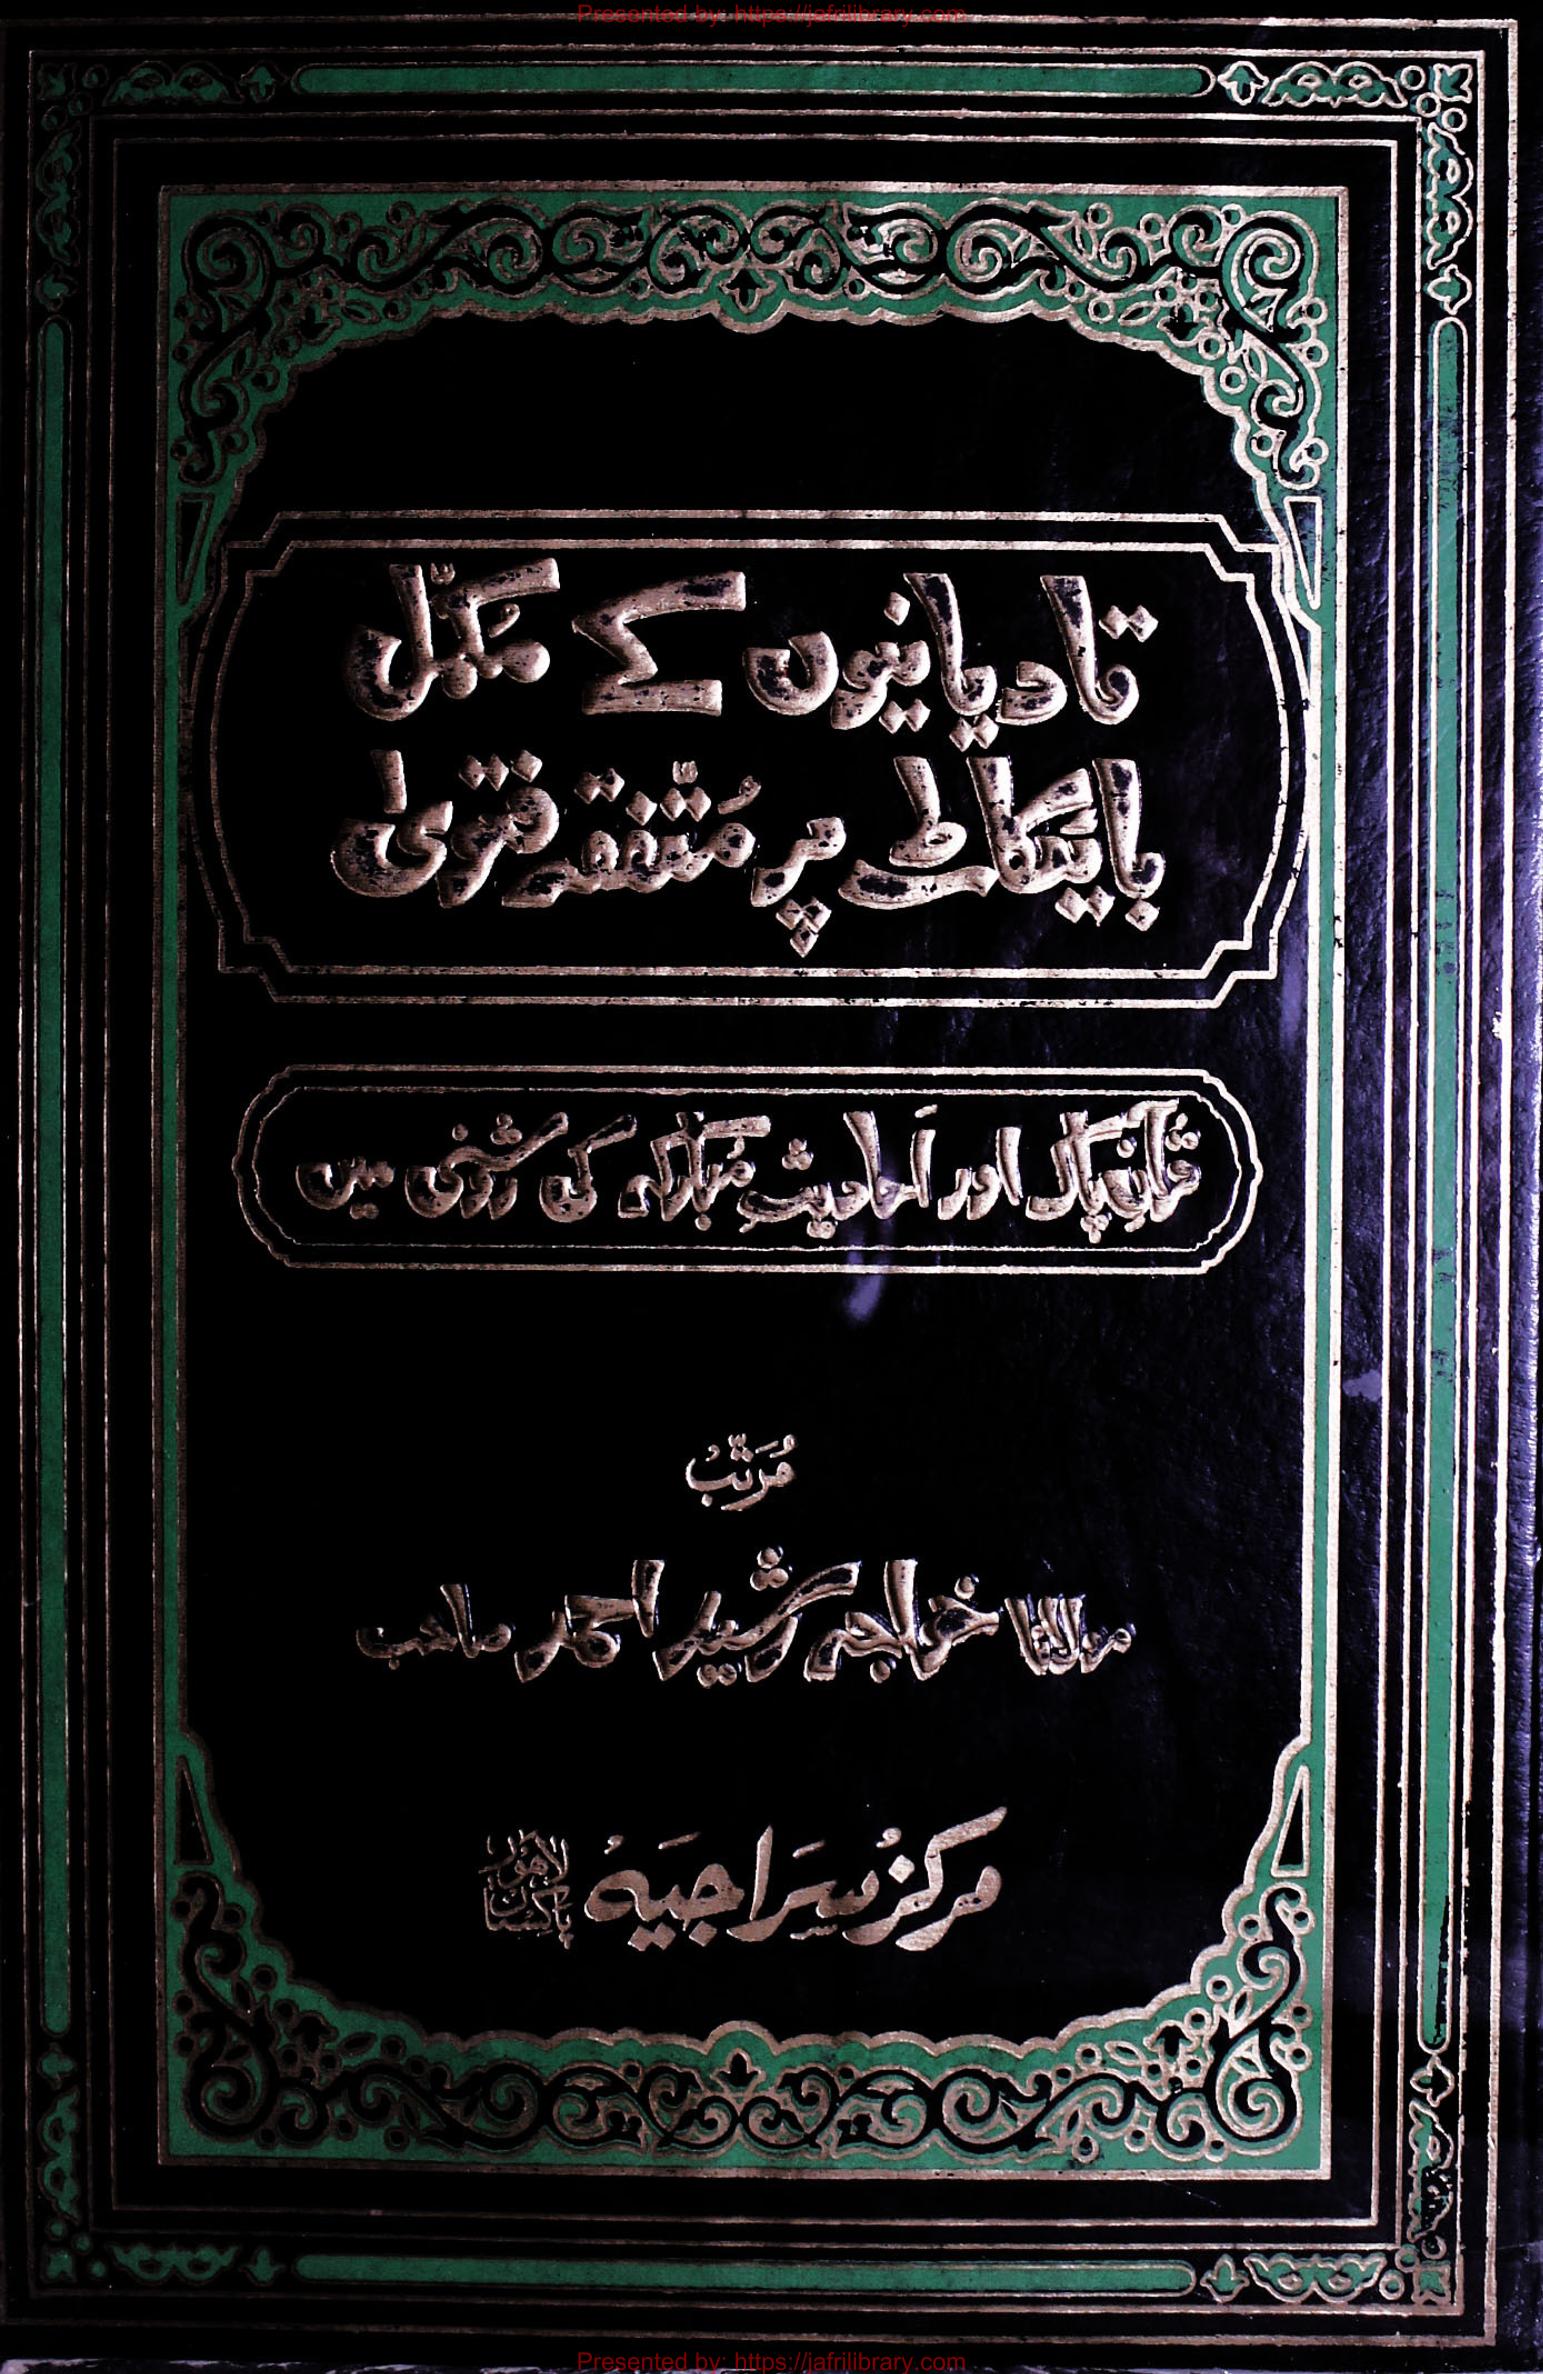 Presented by: https://jafrilibrary.com
قادیانیوں کے مکمّل
بائیکاٹ پر مُتّفقہ فتویٰ
قرآنِ پاک اور اَحادیثِ مُبارکہ کی روشنی میں
مُرَتّبْ
مولانا خواجہ رشید احمد صاحب
مرکز سِرَاجیَہ لاہور پاکستان
Presented by: https://jafrilibrary.com